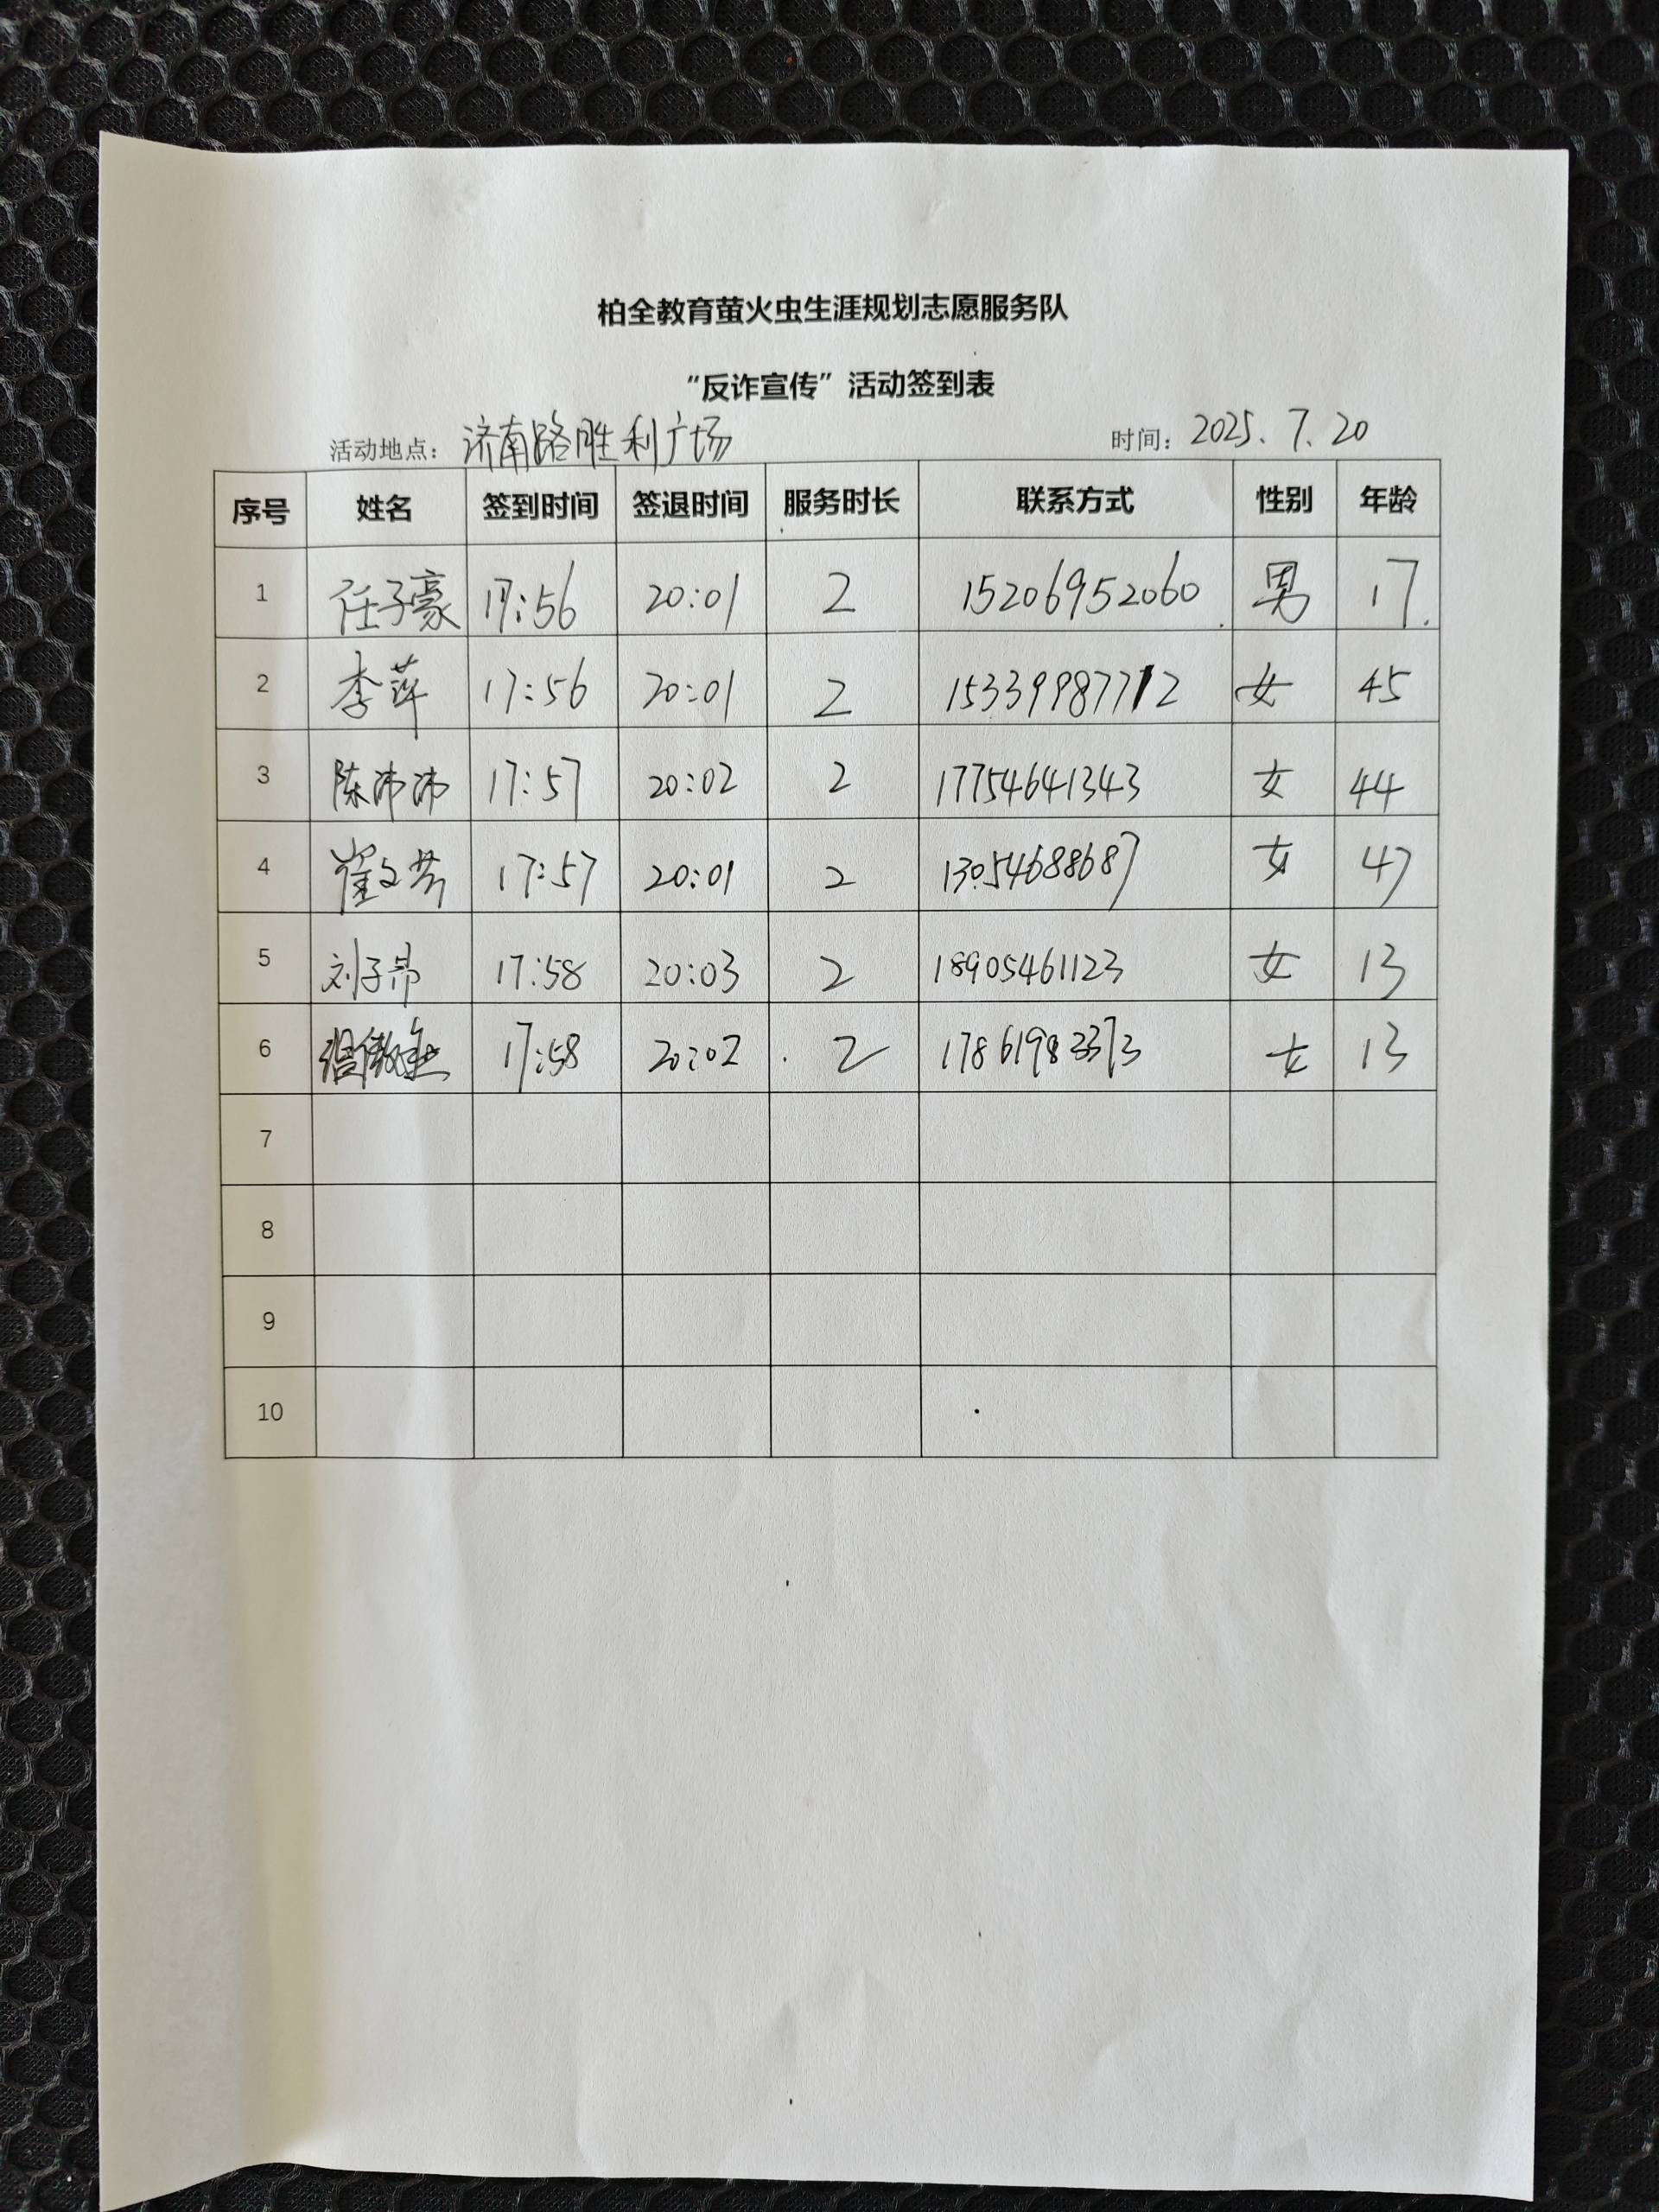 柏全教育萤火虫生涯规划志愿服务队
“反诈宣传”活动签到表
活动地点：济南路胜利广场 时间：2025.7.20
序号 姓名 签到时间 签退时间 服务时长 联系方式 性别 年龄
1 任子豪 17:56 20:01 2 15206952060 男 17
2 李萍 17:56 20:01 2 15339987712 女 45
3 陈沛沛 17:57 20:02 2 17754641343 女 44
4 崔文芳 17:57 20:01 2 13054688687 女 47
5 刘子昂 17:58 20:03 2 18905461123 女 13
6 17:58 20:02 2 17861983373 女 13
7
8
9
10